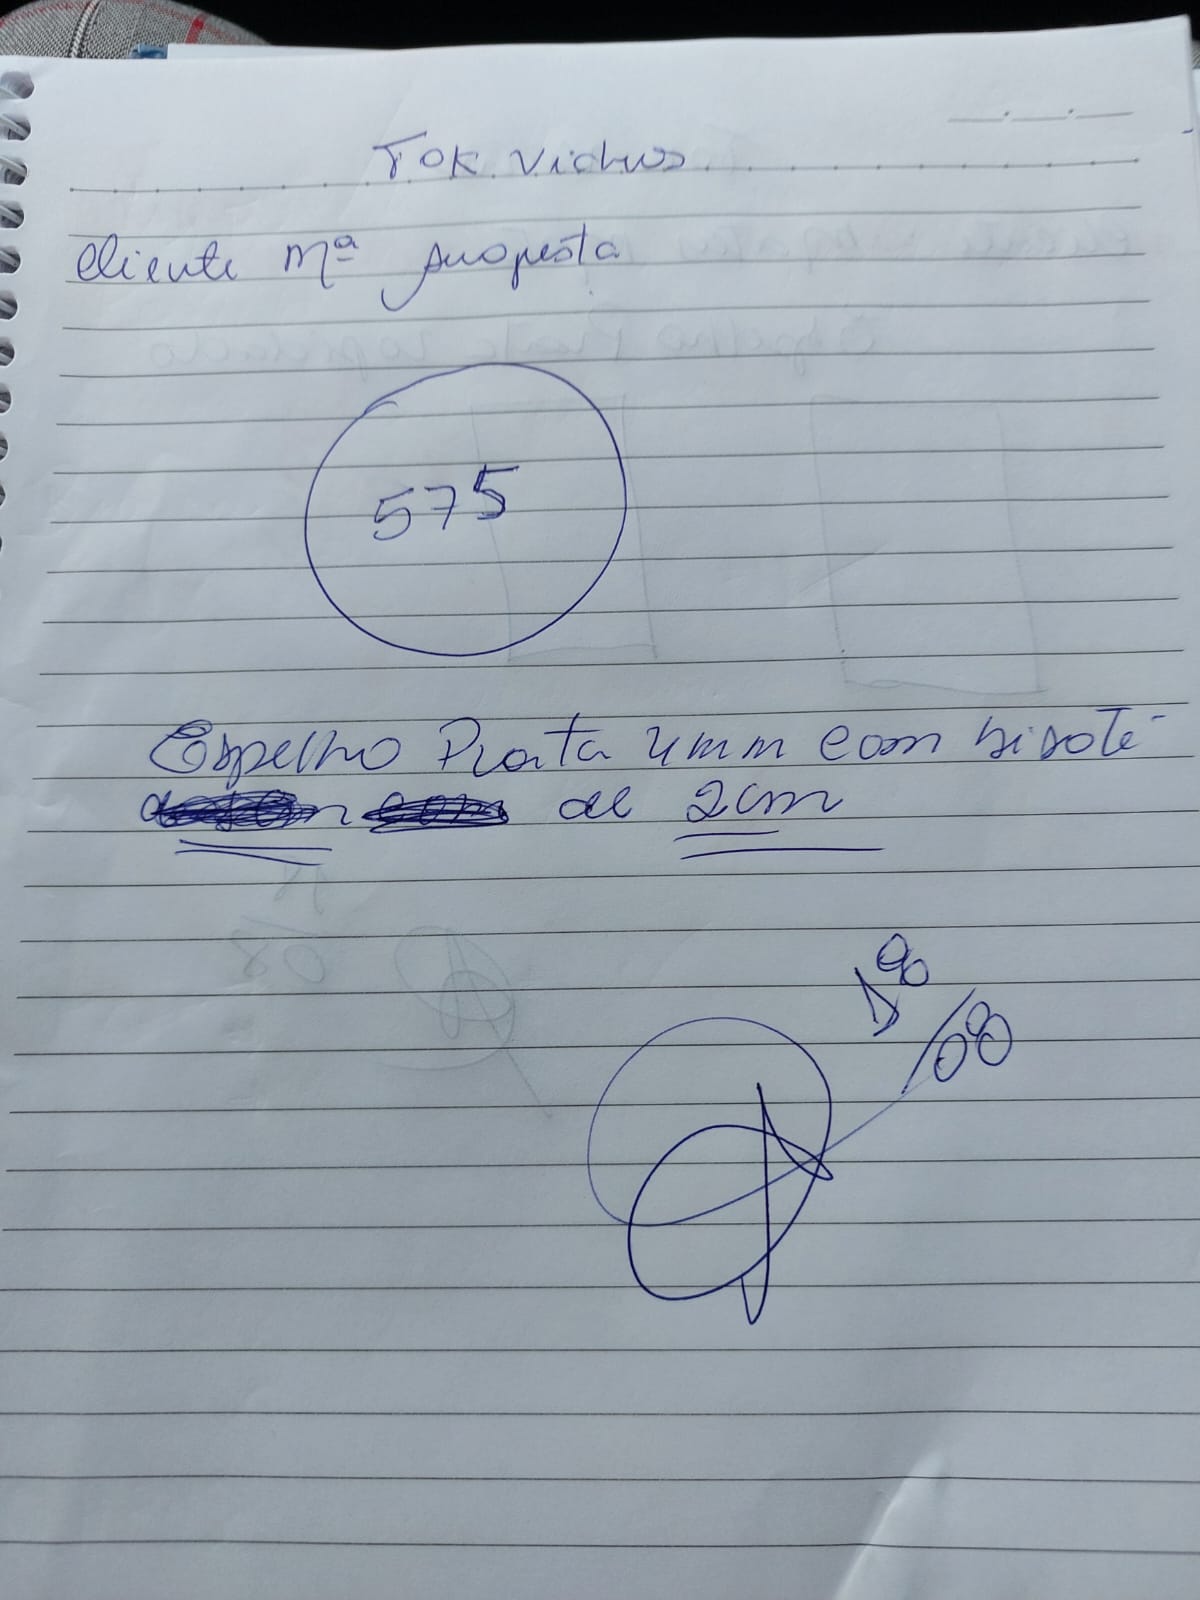 TOK Vidros
Cliente Mª
575
Espelho Prata 4mm com bisotê
de 2cm
18
/08